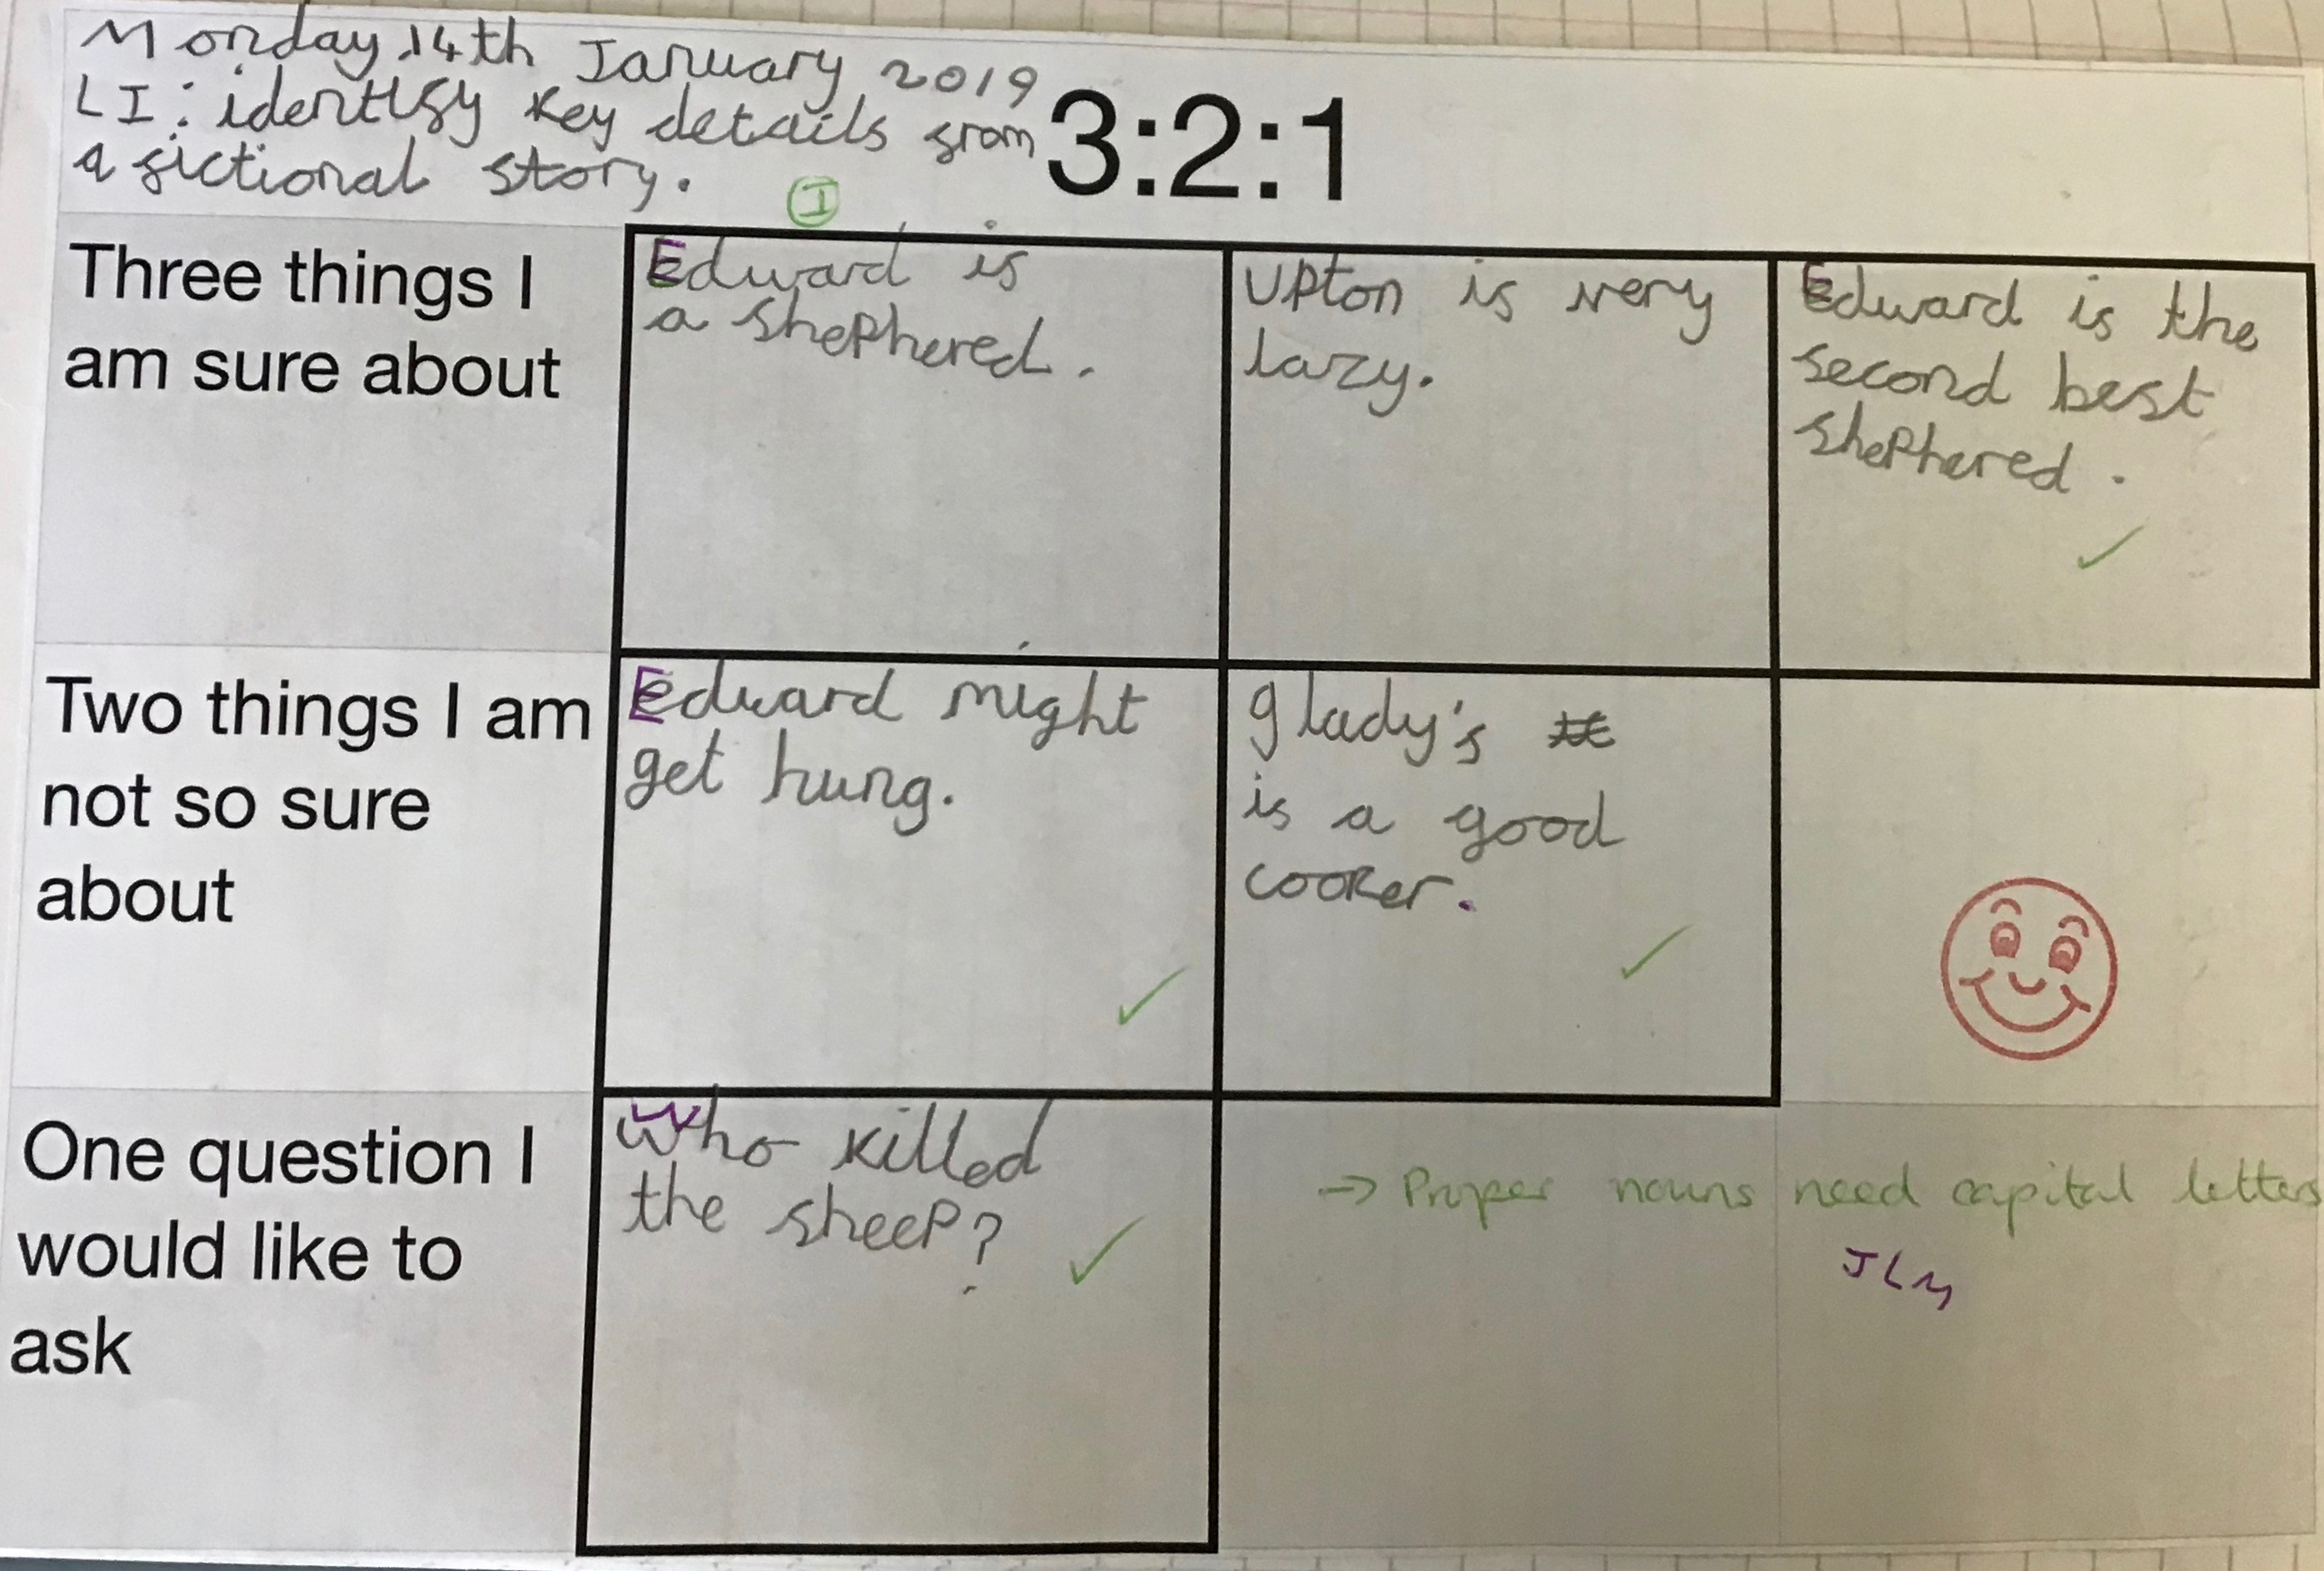 Monday 14th January 2019
LI: identify key details from
a fictional story.
3:2:1
I
Three things I
am sure about
Edward is
a shephered.
Upton is very
lazy.
Edward is the
second best
shephered.
Two things I am
not so sure
about
Edward might
get hung.
glady's
is a good
cooker.
One question I
would like to
ask
Who killed
the sheep?
→ Proper nouns need capital letters
JLM